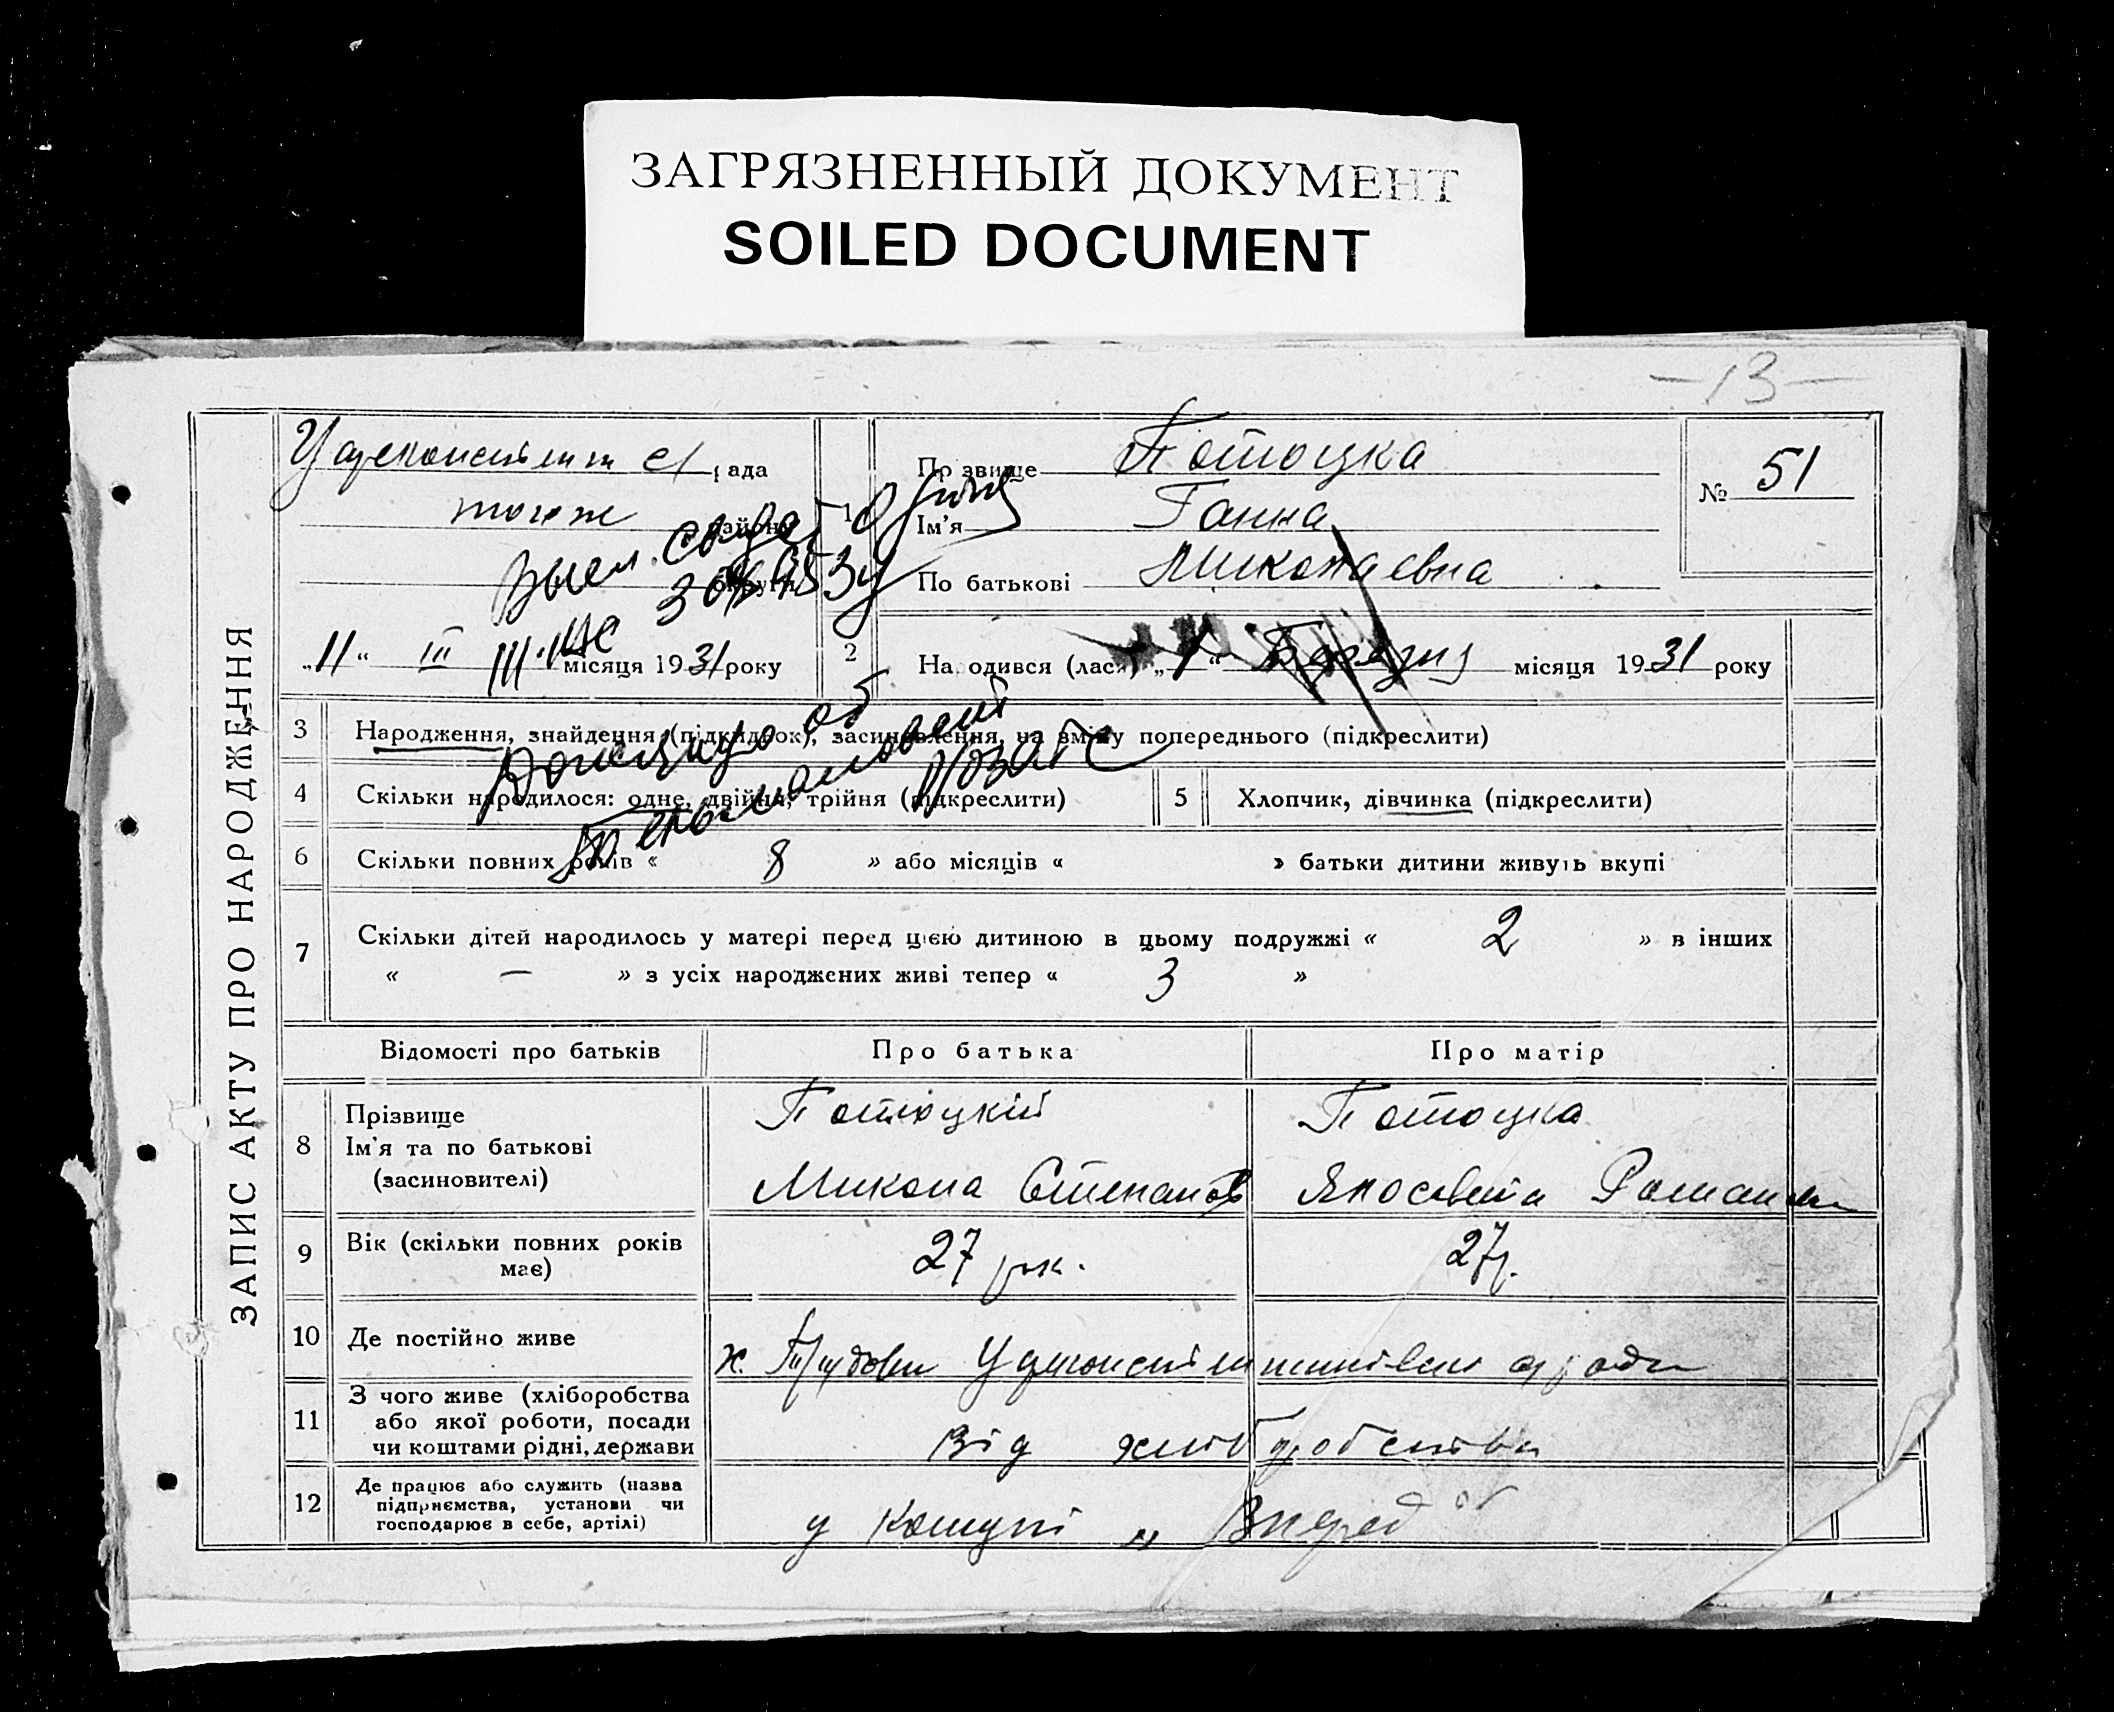 ЗАГРЯЗНЕННЫЙ ДОКУМЕНТ
SOILED DOCUMENT
—13—
ЗАПИС АКТУ ПРО НАРОДЖЕННЯ
рада
тогож району
округи
„11“ III місяця 1931 року
1
Прізвище Потоцка
Ім'я Ганна
По батькові Миколаевна
№ 51
2
Народився (лася) „1“ Березня місяця 1931 року
Выд.
3 Народження, знайдення (підкидьок), засиновлення, на зміну попереднього (підкреслити)
4 Скільки народилося: одне, двійня, трійня (підкреслити)
5 Хлопчик, дівчинка (підкреслити)
6 Скільки повних років « 8 » або місяців « » батьки дитини живуть вкупі
7 Скільки дітей народилось у матері перед цією дитиною в цьому подружжі « 2 » в інших
« — » з усіх народжених живі тепер « 3 »
Відомості про батьків Про батька Про матір
8 Прізвище
Ім'я та по батькові
(засиновителі)
Потоцкій
Микола Степанов
Потоцка
9 Вік (скільки повних років
має)
27 рок.
27 р.
10 Де постійно живе
х.
11 З чого живе (хліборобства
або якої роботи, посади
чи коштами рідні, держави
від хліборобства
12 Де працює або служить (назва
підприємства, установи чи
господарює в себе, артілі)
у комуні „Вперед“